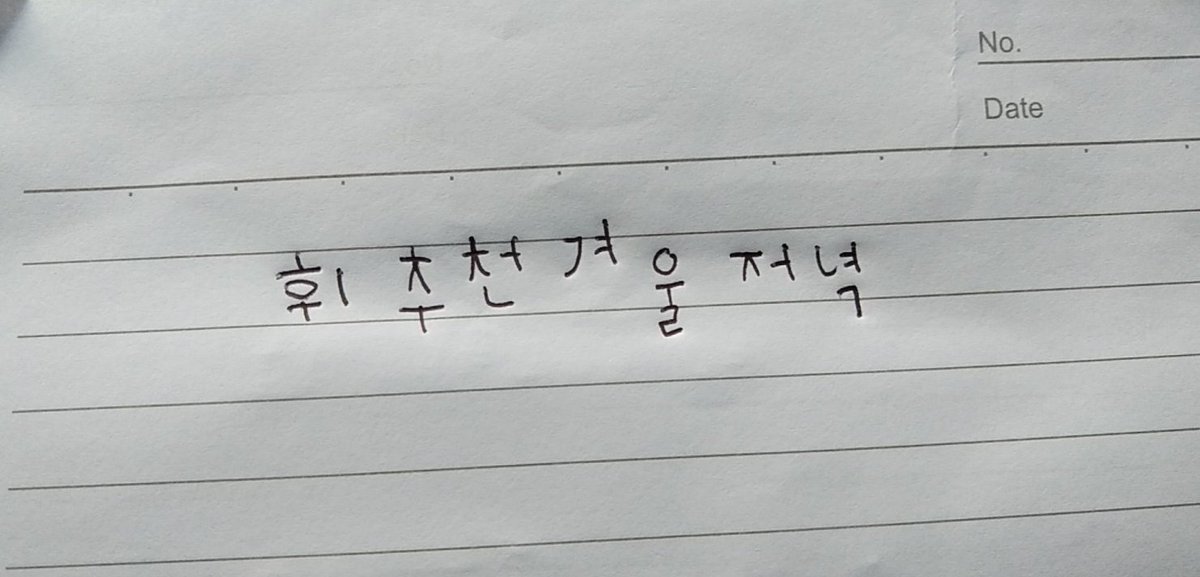 No.
Date
휘 추천 겨울 저녁